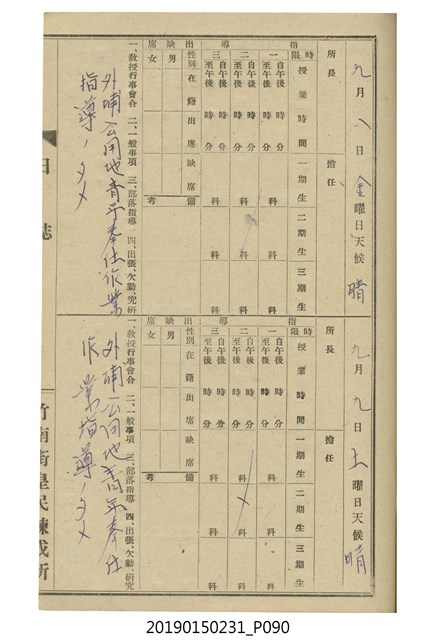 九月八日金曜日天候晴
所長 擔任
時限 授業時間 一期生 二期生 三期生
指導
一 自午後 時 分 至午後 時 分 科 科 科
二 自午後 時 分 至午後 時 分 科 科 科
三 自午後 時 分 至午後 時 分 科 科 科
出缺席 性別 在籍 出席 缺席 備考
男
女
一、教授行事會合 二、一般事項 三、部落指導 四、出張、欠勤、究研
外埔公用地青年奉仕作業
指導
九月九日土曜日天候晴
所長 擔任
時限 授業時間 一期生 二期生 三期生
指導
一 自午後 時 分 至午後 時 分 科 科 科
二 自午後 時 分 至午後 時 分 科 科 科
三 自午後 時 分 至午後 時 分 科 科 科
出缺席 性別 在籍 出席 缺席 備考
男
女
一、教授行事會合 二、一般事項 三、部落指導 四、出張、欠勤、研究
外埔公用地青年奉仕
作業指導
日誌
竹南街皇民鍊成所
20190150231_P090